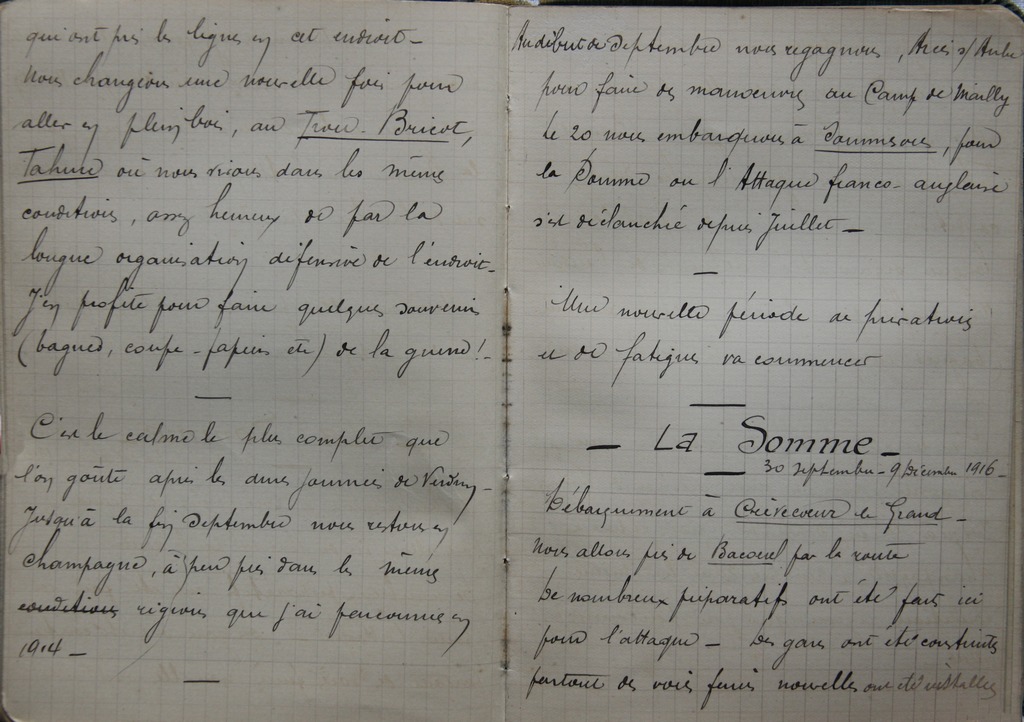 qui ont pris les lignes en cet endroit –
Nous changions une nouvelle fois pour
aller en plein bois, au Trou-Bricot,
Tahure où nous vivons dans les mêmes
conditions, assez heureux de par la
longue organisation défensive de l'endroit –
J'en profite pour faire quelques souvenirs
(bagues, coupe-papiers etc) de la guerre! –
C'est le calme le plus complet que
l'on goûte après les dures journées de Verdun –
Jusqu'à la fin Septembre nous restons en
Champagne, à peu près dans les mêmes
conditions régions que j'ai parcourues en
1914 –
Au début de Septembre nous regagnons, Arcis s/ Aube
pour faire des manoeuvres au Camp de Mailly
Le 20 nous embarquons à Sommesous, pour
la Somme ou l'Attaque franco-anglaise
s'est déclanchée depuis Juillet –
Une nouvelle période de privations
et de fatigues va commencer
– La Somme –
30 septembre – 9 Décembre 1916 –
Débarquement à Crèvecoeur le Grand –
Nous allons près de Bacouel par la route
De nombreux préparatifs ont été faits ici
pour l'attaque – Des gares ont été construites
partout des voies ferrées nouvelles ont été installées